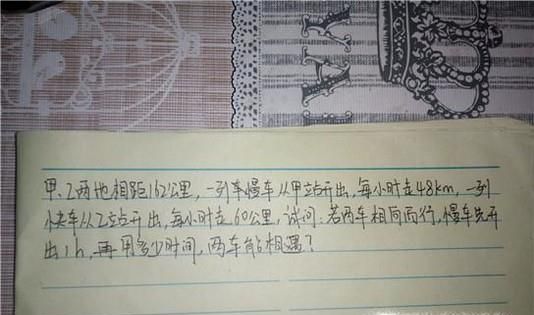 甲、乙两地相距162公里,一列车慢车从甲站开出,每小时走48km,一列
快车从乙站开出,每小时走60公里,试问:若两车相向而行,慢车先开
出1h,再用多少时间,两车能相遇?